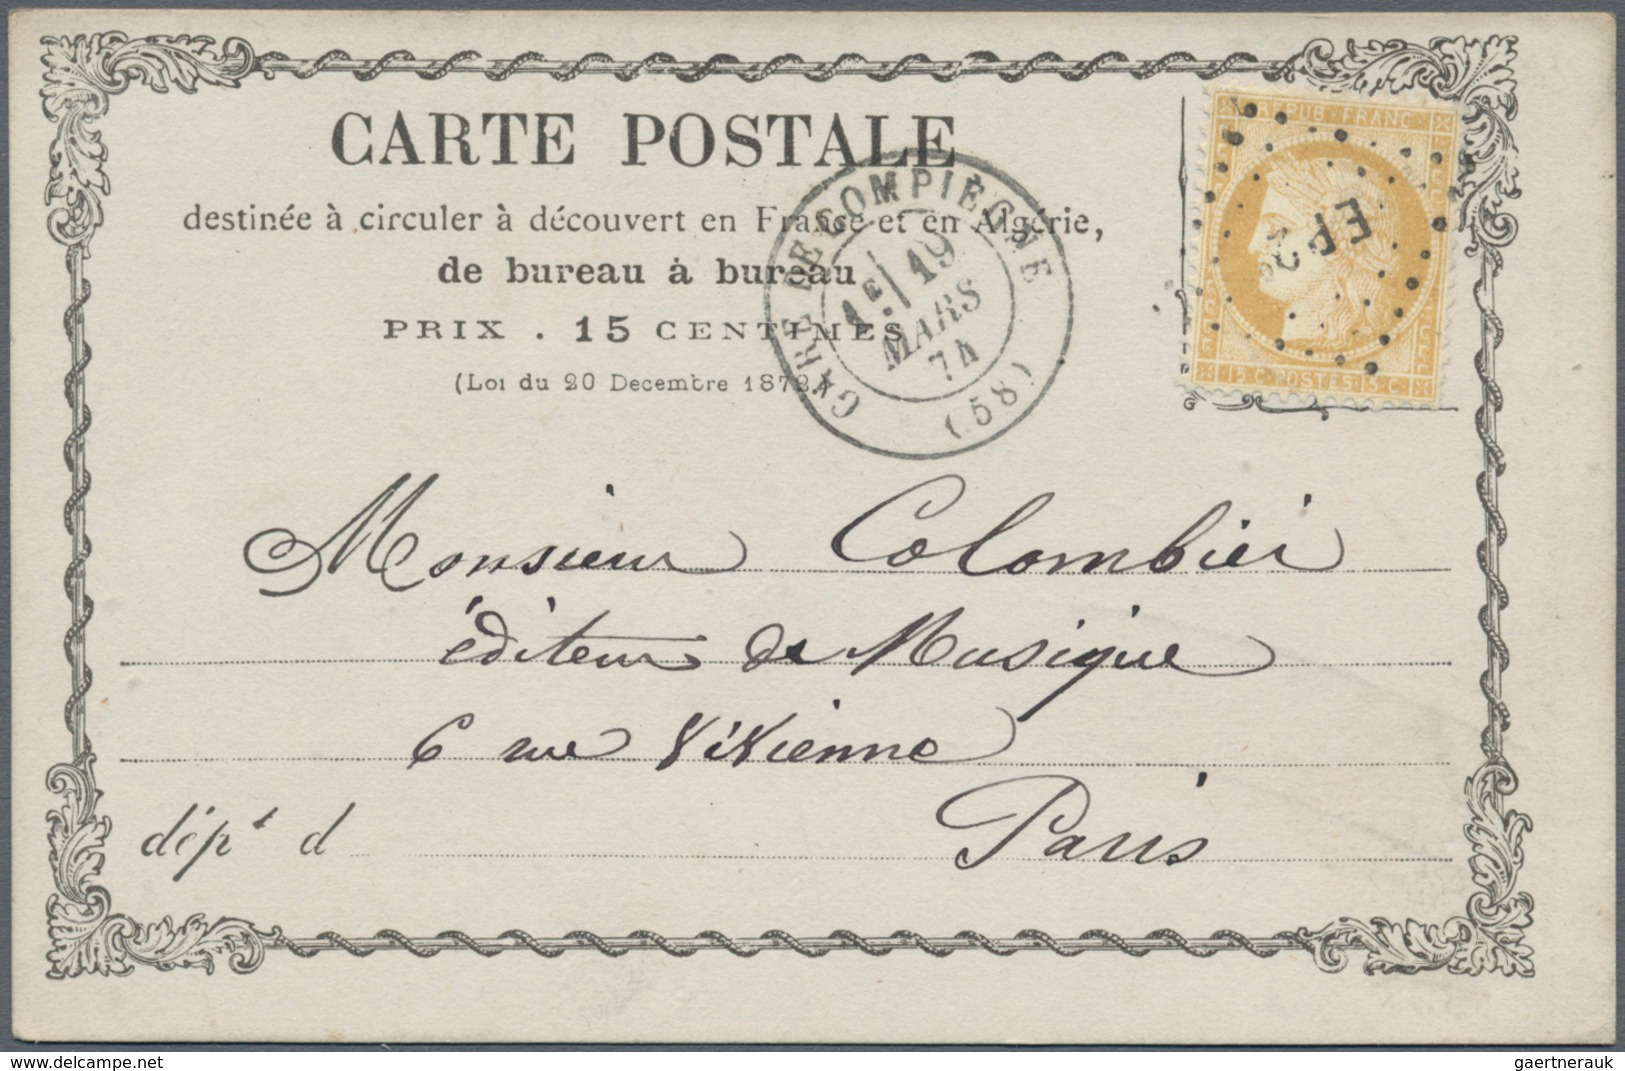 CARTE POSTALE
destinée à circuler à découvert en France et en Algérie,
de bureau à bureau
PRIX . 15 CENTIMES
(Loi du 20 Decembre 1872)
GARE DE COMPIÈGNE
1E/19
MARS
74
(58)
REPUB·FRANC
15 C·POSTES·15 C
Monsieur Colombier
éditeur de Musique
6 rue Vivienne
Paris
dépt d
delcampe.net
gaertnerauk